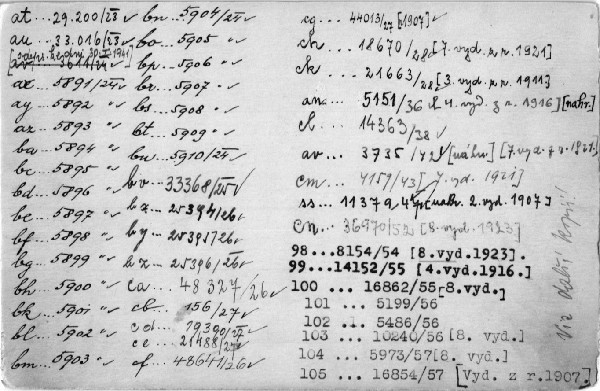 at ... 29.200/23 ✓
au ... 33.016/23 ✓
av ... 3611/24 ✓
ax ... 5891/24 ✓
ay ... 5892 " ✓
az ... 5893 " ✓
ba ... 5894 " ✓
bc ... 5895 ✓
bd ... 5896 " ✓
be ... 5897 " ✓
bf ... 5898 " ✓
bg ... 5899 " ✓
bh ... 5900 " ✓
bk ... 5901 " ✓
bl ... 5902 " ✓
bm ... 5903 " ✓
bn ... 5904/24 ✓
bo ... 5905 " ✓
bp ... 5906 " ✓
br ... 5907 " ✓
bs ... 5908 " ✓
bt ... 5909 " ✓
bu ... 5910/24 ✓
bv ... 33368/25 ✓
bx ... 25394/26 ✓
by ... 25395/26 ✓
bz ... 25396/26 ✓
ca ... 48327/26 ✓
cb ... 156/27 ✓
cd ... 19390/27 ✓
ce ... 21488/27 ✓
cf ... 48641/26 ✓
cg ... 44013/27 [1907] ✓
ch ... 18670/28 [7. vyd. z r. 1921]
ck ... 21663/28 [3. vyd. z r. 1911]
an ... 5151/36 [4. vyd. z r. 1916] [náhr.]
cl ... 14363/38 ✓
av ... 3735/42 ✓ [náhr.] [7. vyd. z r. 1921.]
cm ... 4157/43 [7. vyd. 1921]
ss ... 11379 [náhr. 2. vyd. 1907] ✓
cn ... 36970/52 [8. vyd. 1923]
98...8154/54 [8.vyd.1923].
99...14152/55 [4.vyd.1916.]
100 ... 16862/55[8.vyd.]
101 ... 5199/56
102 ... 5486/56
103 ... 10240/56 [8. vyd.]
104 ... 5973/57[8. vyd.]
105 ... 16854/57 [Vyd. z r.1907]
Viz další kopii!